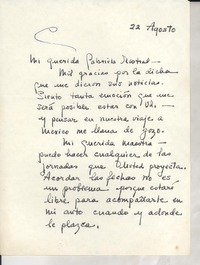 22 Agosto
Mi querida Gabriela Mistral -
Mil gracias por la dicha
que me dieron sus noticias.
Siento tanta emoción que me
será posible estar con Ud. -
y pensar en nuestro viaje a
Mexico me llena de gozo.
Mi querida maestra -
puedo hacer cualquier de las
jornadas que Usted proyecta.
Acordar las fechas no es
un problema - porque estaré
libre para acompañarle en
mi auto cuando y adonde
le plazca.